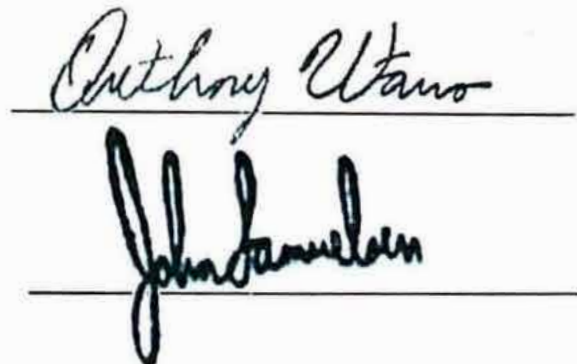 Anthony Utano
John Samuelsen